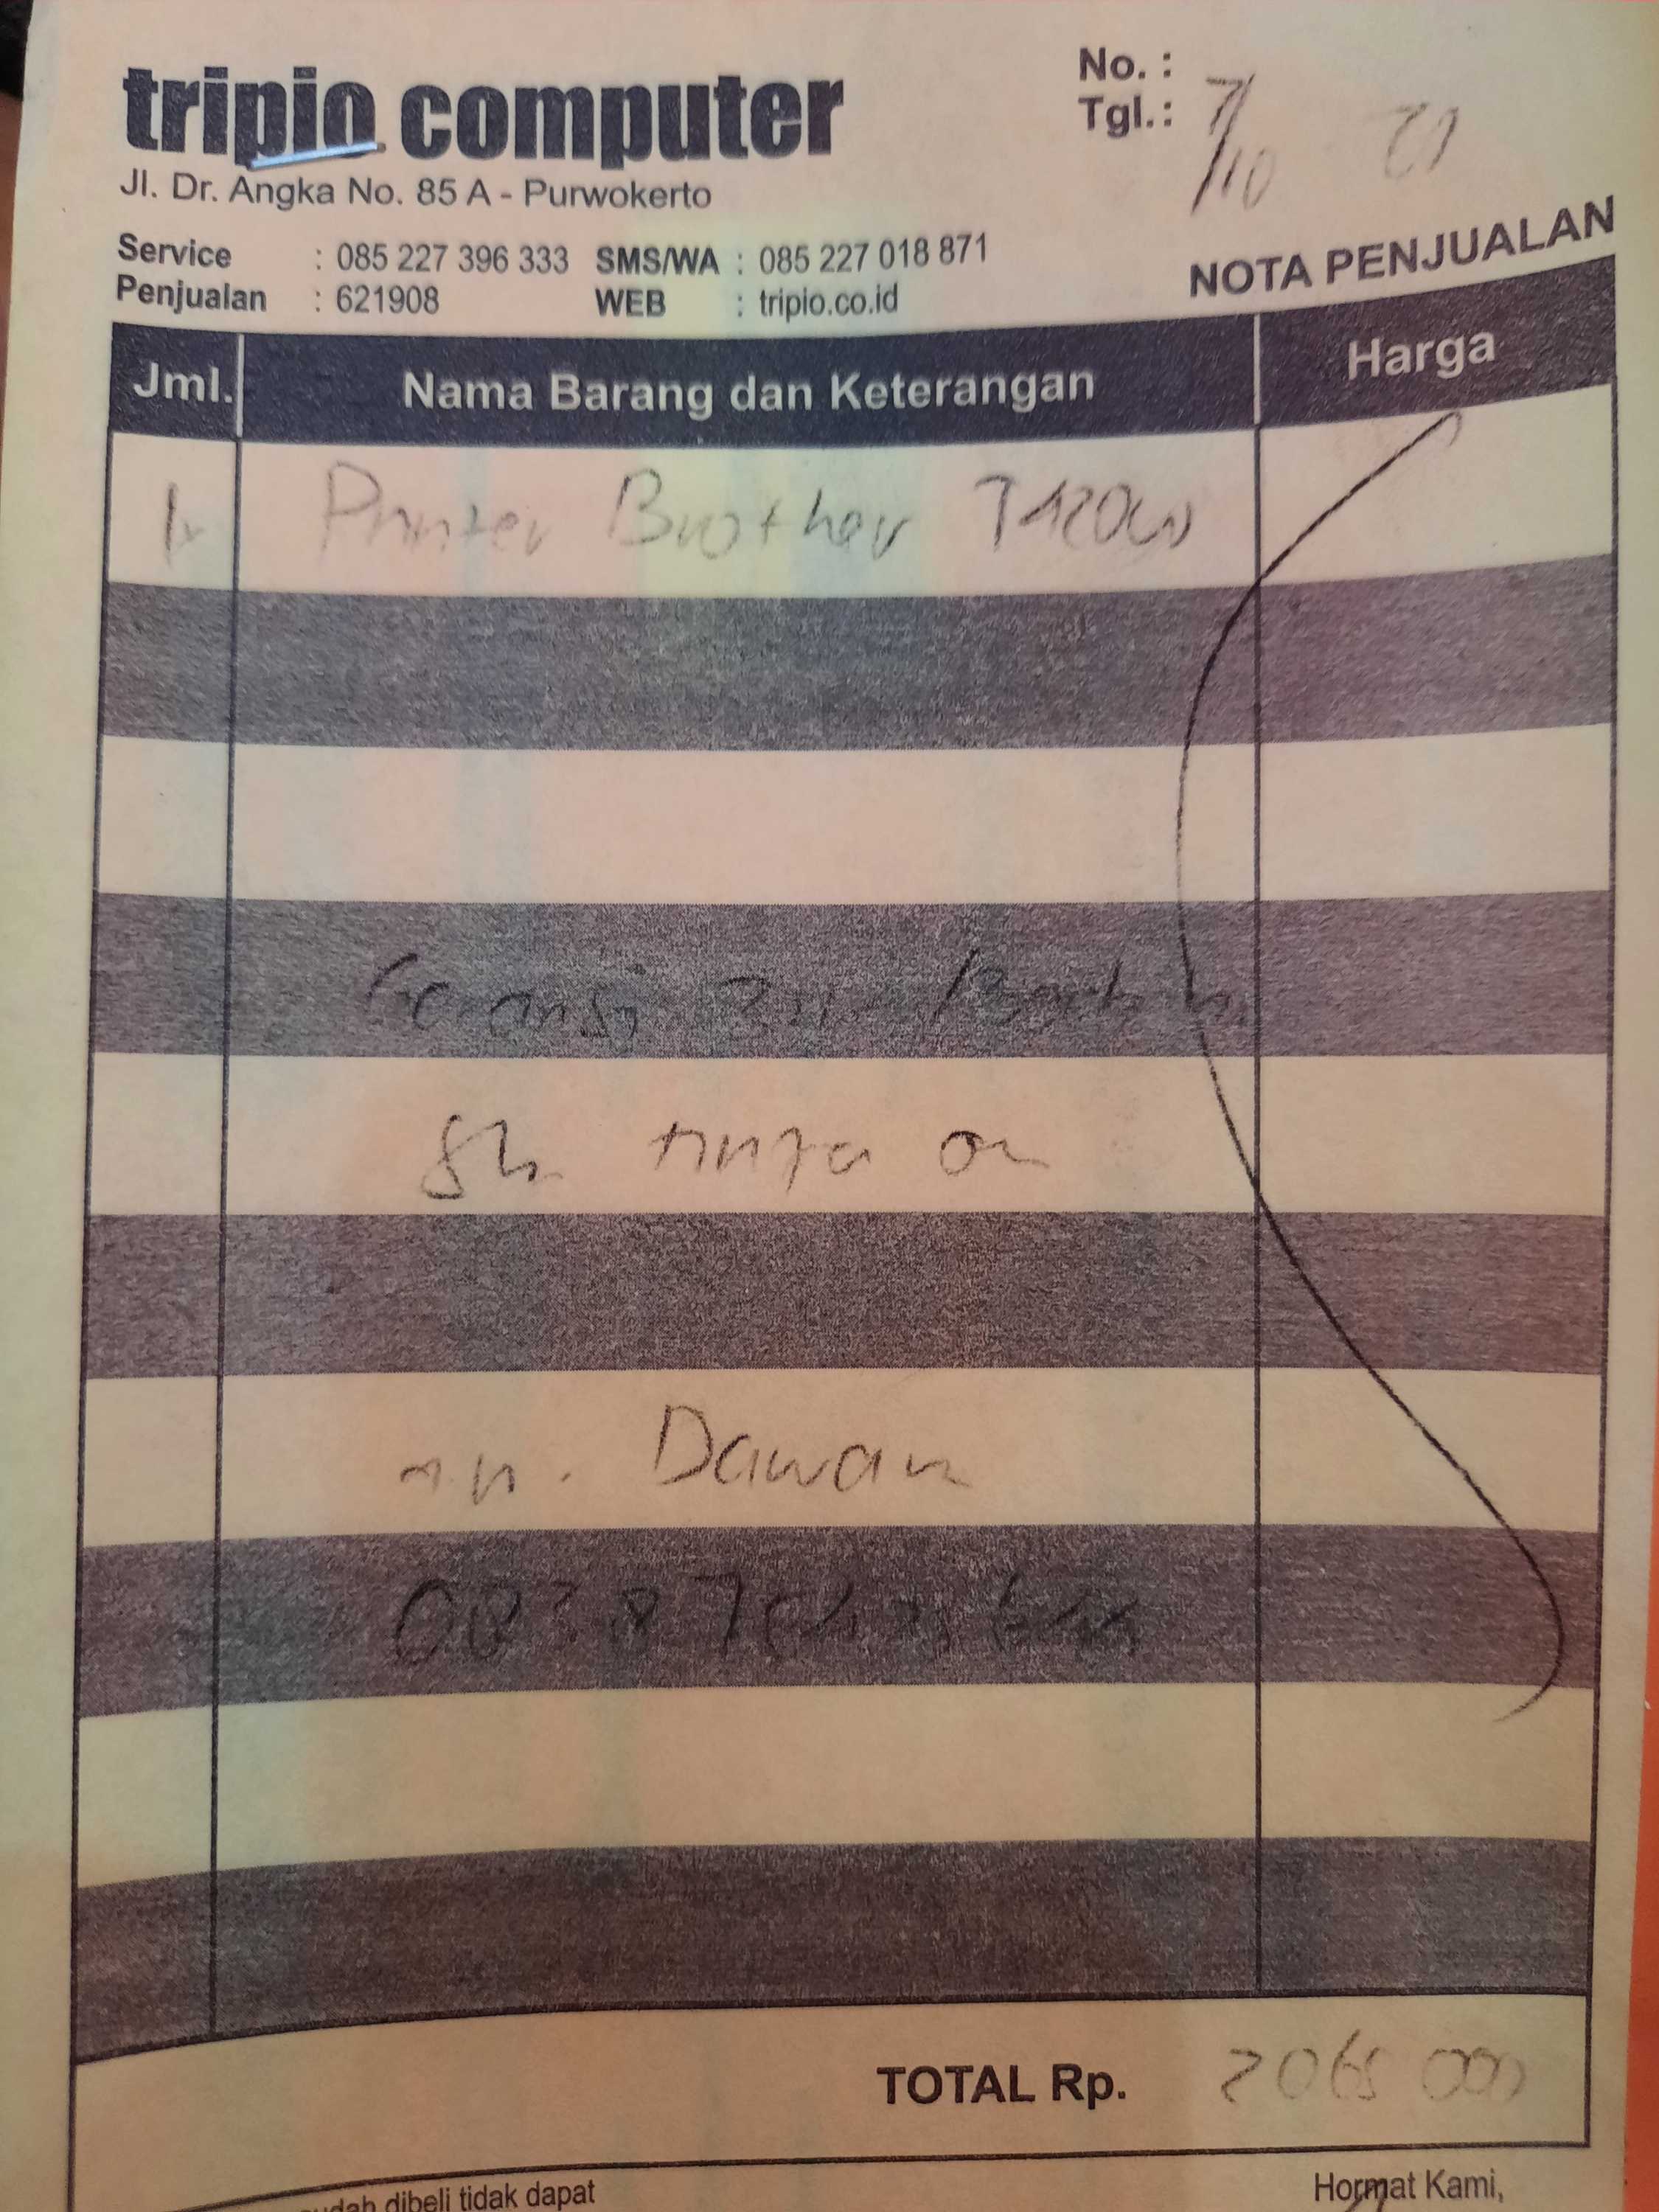 tripio computer
Jl. Dr. Angka No. 85 A - Purwokerto
Service : 085 227 396 333 SMS/WA : 085 227 018 871
Penjualan : 621908 WEB : tripio.co.id
No. :
Tgl. : 7/10 21
NOTA PENJUALAN
Jml. Nama Barang dan Keterangan Harga
1 Printer Brother T420W
Garansi
tinta
a.n. Dawan
TOTAL Rp. 2065 000
dibeli tidak dapat
Hormat Kami,